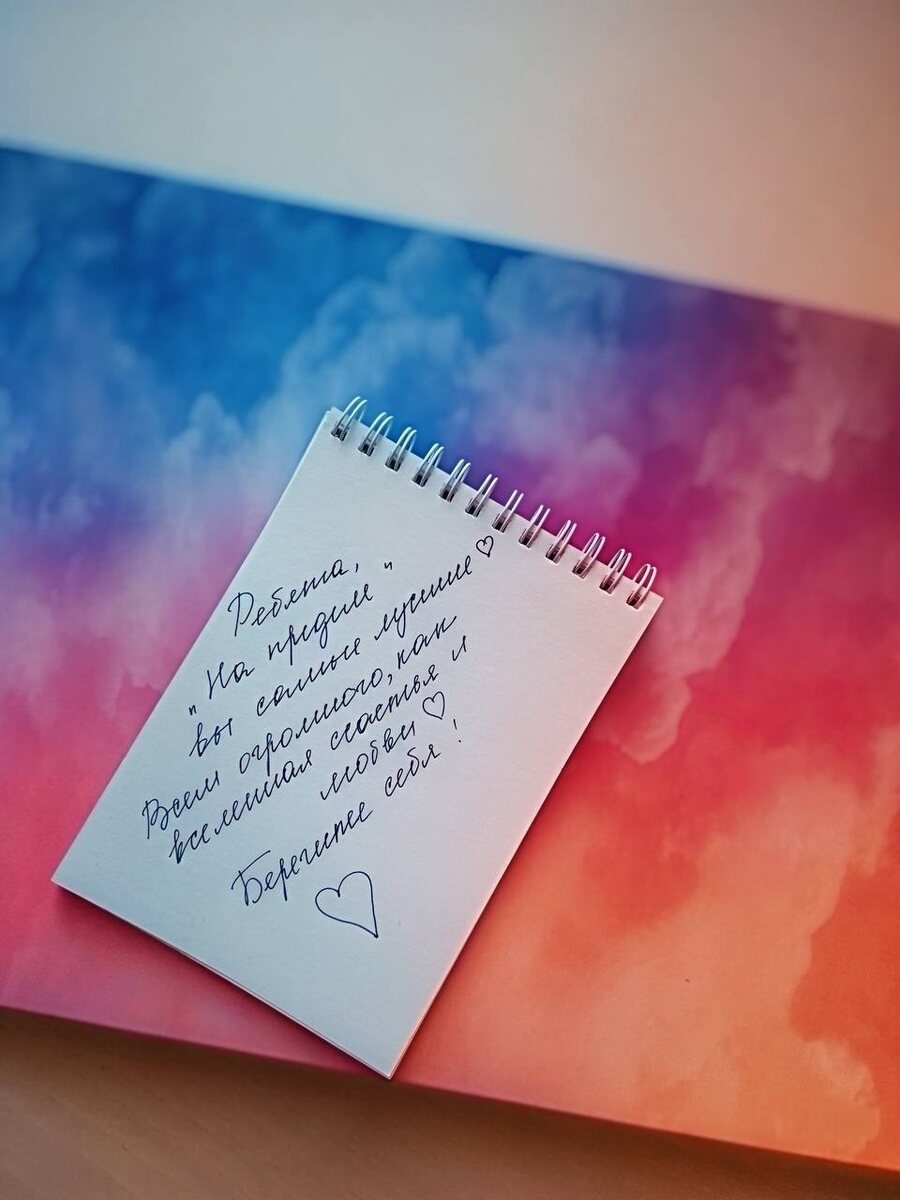 Ребята,
"На придне"
вы самые лучшие♡
Всем огромного, как
вселенная счастья и
любви♡
Берегите себя!
♡